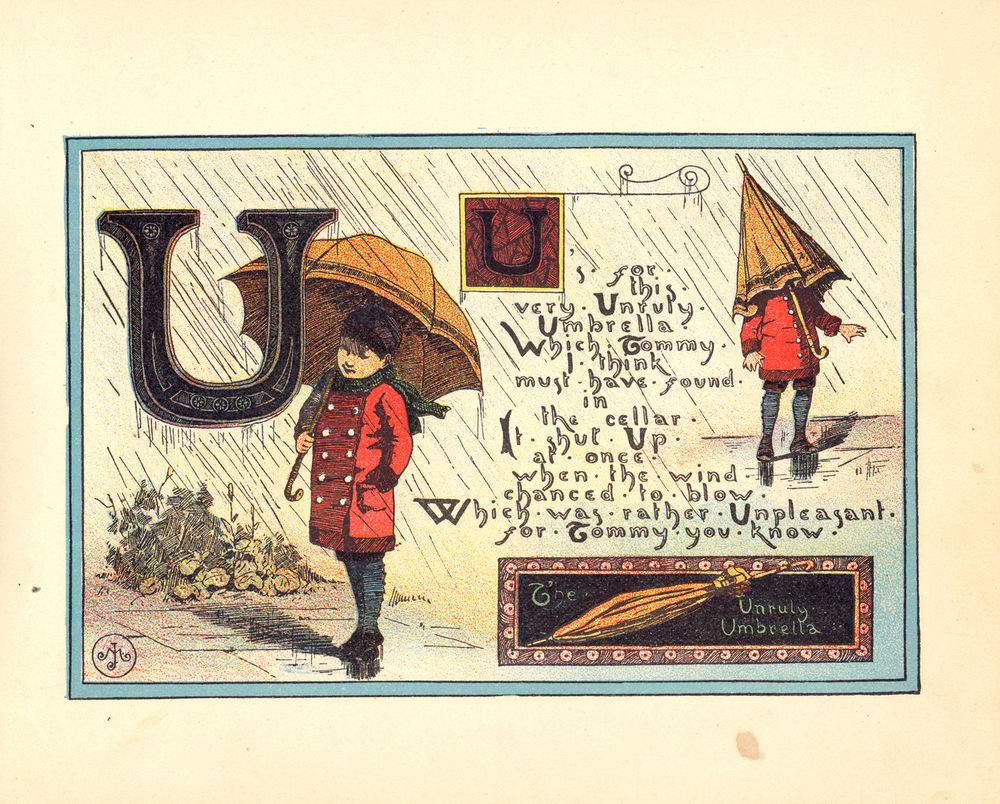 U
U
's · for ·
this ·
very · Unruly ·
Umbrella
Which · Tommy ·
I · think
must · have · found ·
in
the cellar ·
It · shut · Up ·
at · once ·
when · the · wind
chanced · to · blow ·
Which · was · rather · Unpleasant ·
for · Tommy · you · know ·
The
Unruly ·
Umbrella